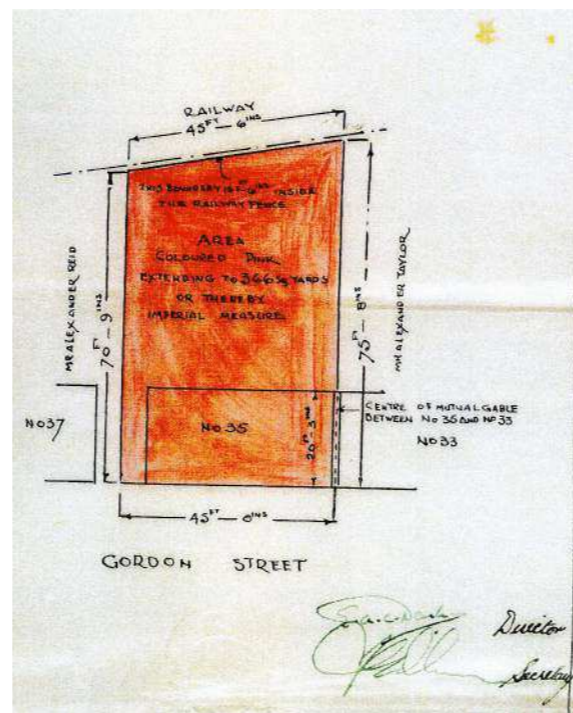 RAILWAY
45FT — 6INS
THIS BOUNDARY IS 1FT-6INS INSIDE
THE RAILWAY FENCE
AREA
COLOURED PINK
EXTENDING TO 366 Sq YARDS
OR THEREBY
IMPERIAL MEASURE.
MR ALEXANDER REID
70FT — 9INS
75FT — 8INS
MR ALEXANDER TAYLOR
NO 37
NO 35
20FT — 3INS
CENTRE OF MUTUAL GABLE
BETWEEN NO 35 AND NO 33
NO 33
45FT — 0INS
GORDON STREET
Director
Secretary